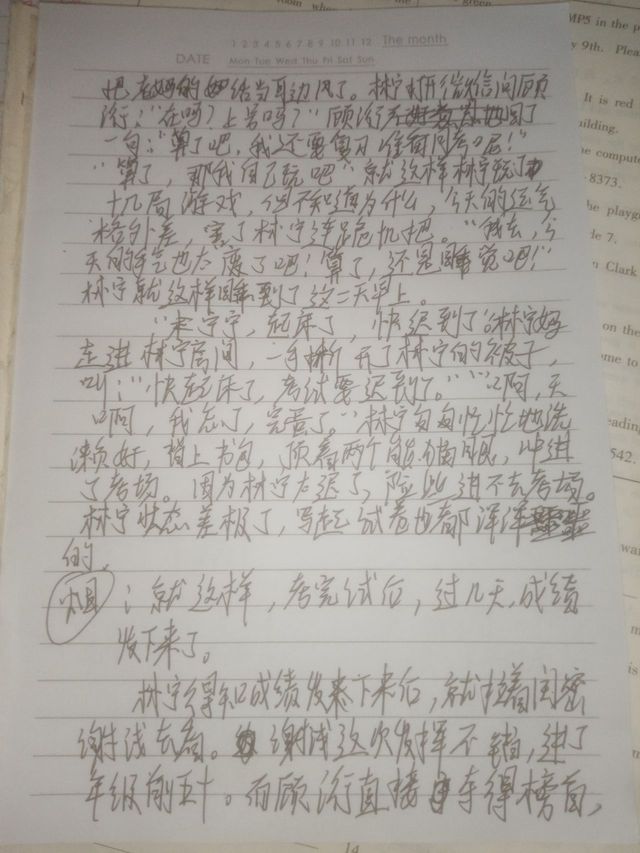 room when the
green
MP5 in the p
y 9th. Plea
It is red
uilding.
he compute
8373.
the playg
de 7.
n Clark
on the
ome to
eading
542.
wan
1 2 3 4 5 6 7 8 9 10 11 12 The month
DATE Mon Tue Wed Thu Fri Sat Sun
把老妈的话当耳边风了。林宁打开微信问顾
行:"在吗?上号吗?"顾行回了
一句:"算了吧,我还要复习准备月考呢!"
"算了,那我自己玩吧"就这样林宁玩了
十几局游戏,但不知道为什么,今天的运气
格外差,害了林宁连跪几把。"我去,今
天的手气也太废了吧!算了,还是睡觉吧!"
林宁就这样睡到了第二天早上。
"林宁宁,起床了,快迟到了"林宁妈
走进林宁房间,一手掀开了林宁的被子,
叫:"快起床了,考试要迟到了。""啊,天
啊,我忘了,完蛋了。"林宁匆匆忙忙地洗
漱好,背上书包,顶着两个熊猫眼,冲进
了考场。因为林宁太迟了,险些进不去考场。
林宁状态差极了,写起试卷也都浑浑
的。
:就这样,考完试后,过几天,成绩
发下来了。
林宁得知成绩发下来后,就拉着闺蜜
谢浅去看。谢浅这次发挥不错,进了
年级前五十。而顾行直接夺得榜首,
14